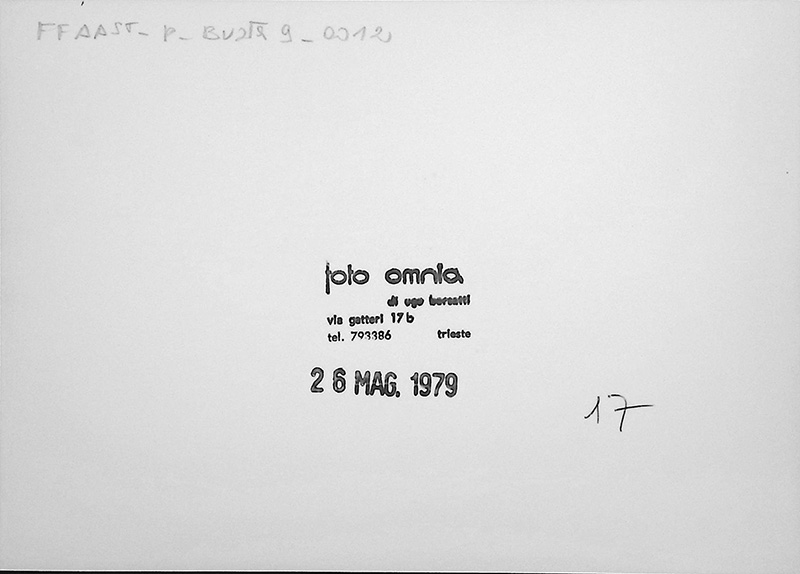 FFAAST - P - BUSTA 9 - 0012
foto omnia
di ugo borsatti
via gatteri 17b
tel. 793386 trieste
26 MAG. 1979
17